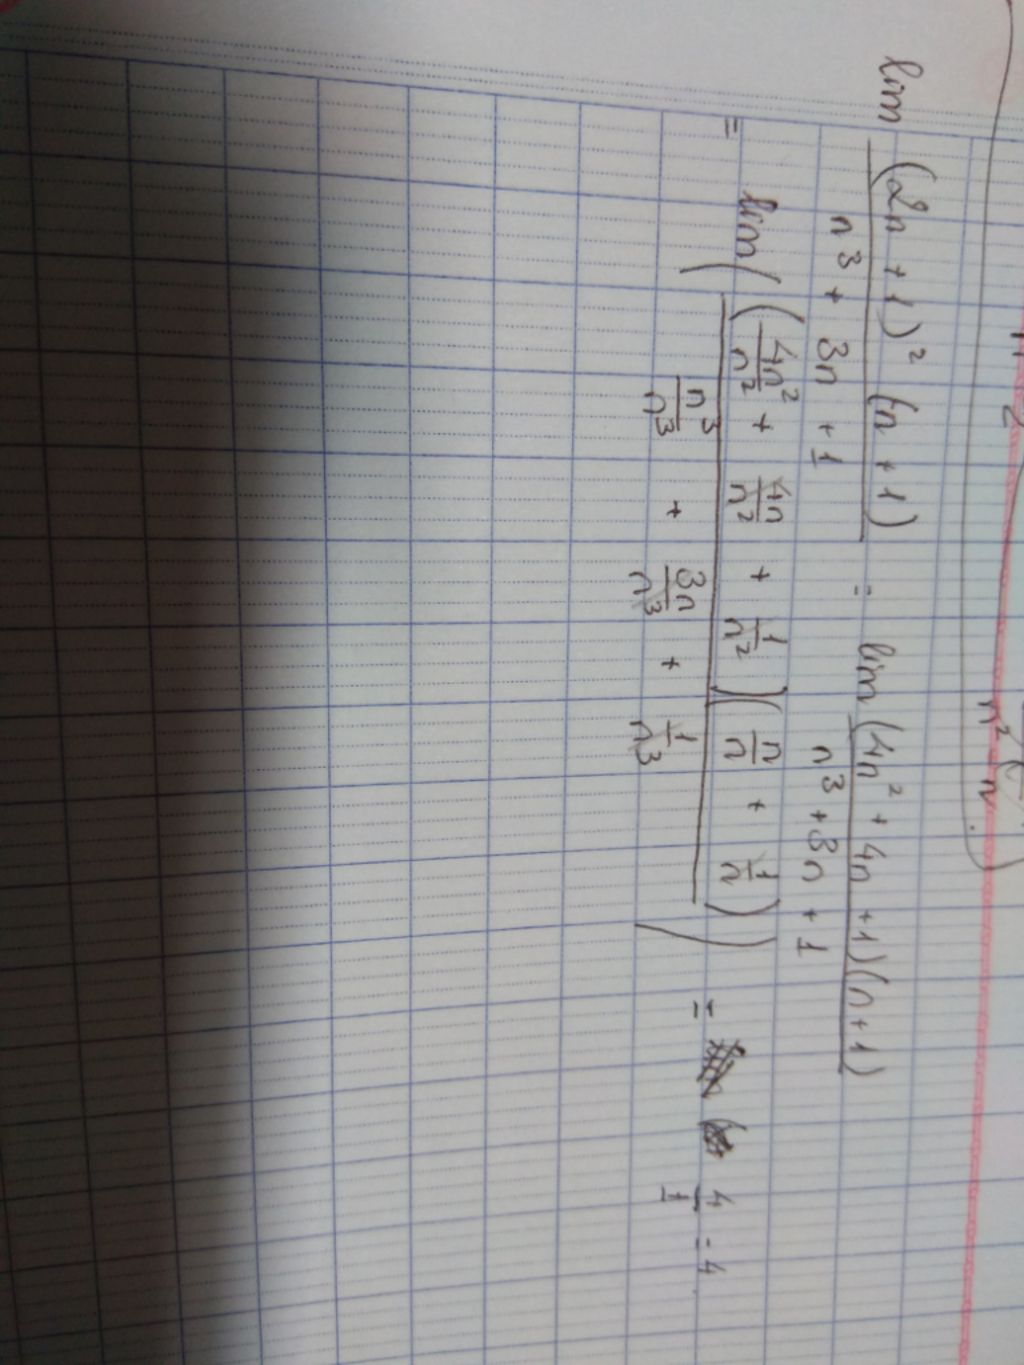 lim (2n + 1)² (n + 1) / n³ + 3n + 1 = lim (4n² + 4n + 1)(n + 1) / n³ + 3n + 1
= lim ( (4n²/n² + 4n/n² + 1/n²)(n/n + 1/n) / n³/n³ + 3n/n³ + 1/n³ ) = 4/1 = 4